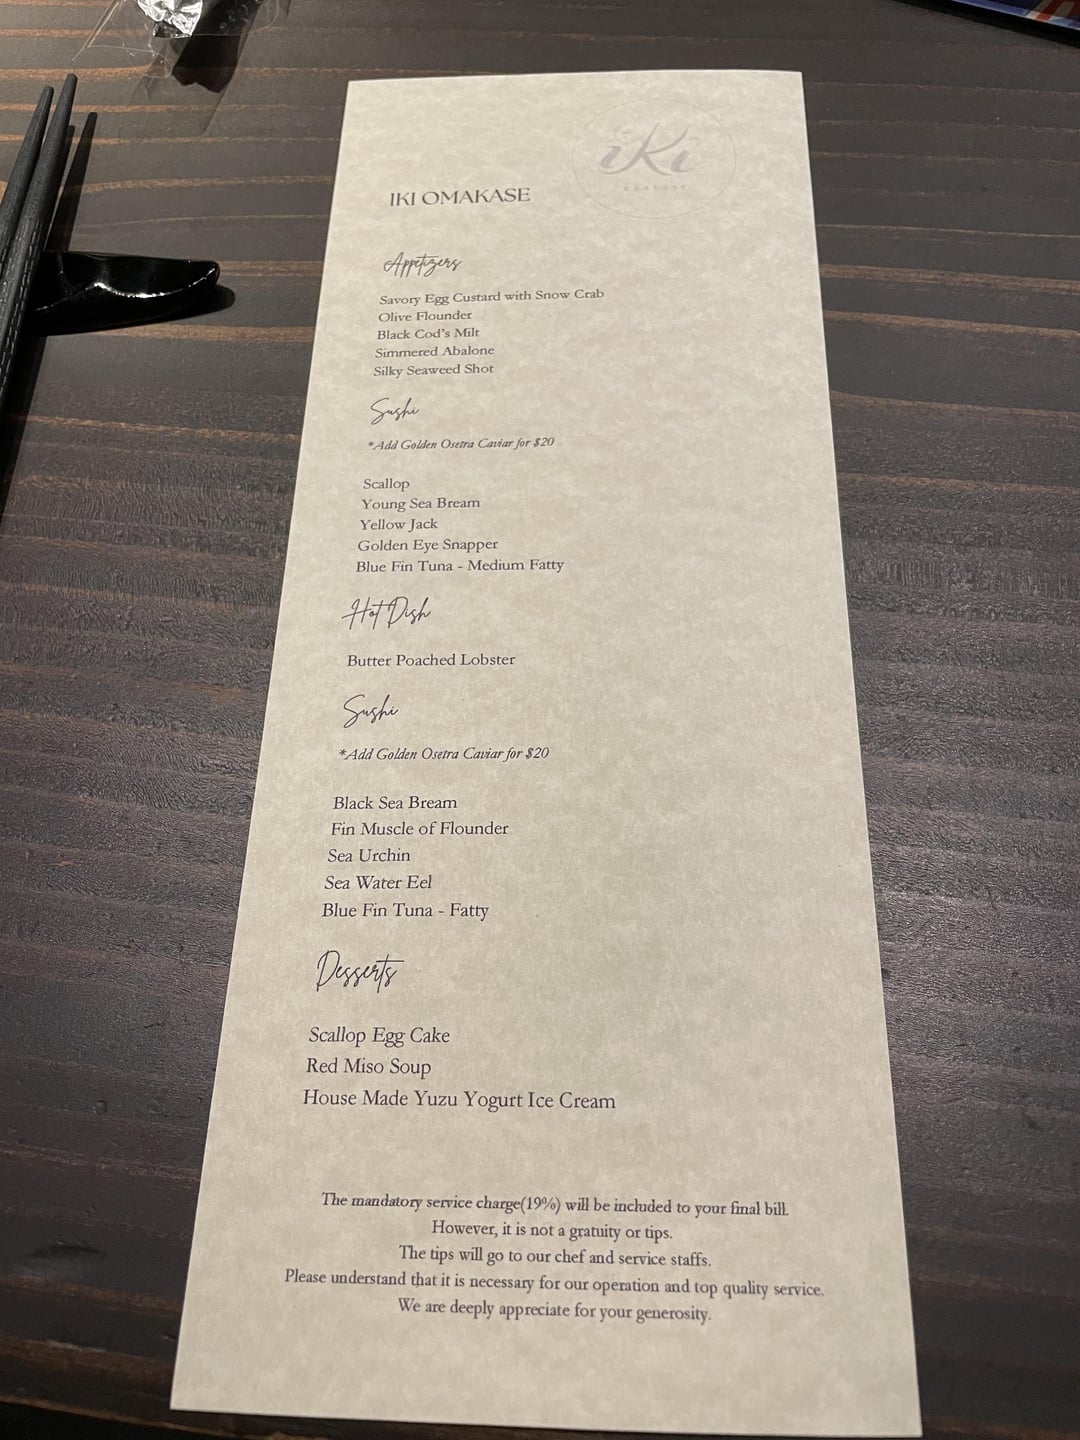 iKi
OMAKASE
IKI OMAKASE
Appetizers
Savory Egg Custard with Snow Crab
Olive Flounder
Black Cod's Milt
Simmered Abalone
Silky Seaweed Shot
Sushi
*Add Golden Osetra Caviar for $20
Scallop
Young Sea Bream
Yellow Jack
Golden Eye Snapper
Blue Fin Tuna - Medium Fatty
Hot Dish
Butter Poached Lobster
Sushi
*Add Golden Osetra Caviar for $20
Black Sea Bream
Fin Muscle of Flounder
Sea Urchin
Sea Water Eel
Blue Fin Tuna - Fatty
Desserts
Scallop Egg Cake
Red Miso Soup
House Made Yuzu Yogurt Ice Cream
The mandatory service charge(19%) will be included to your final bill.
However, it is not a gratuity or tips.
The tips will go to our chef and service staffs.
Please understand that it is necessary for our operation and top quality service.
We are deeply appreciate for your generosity.